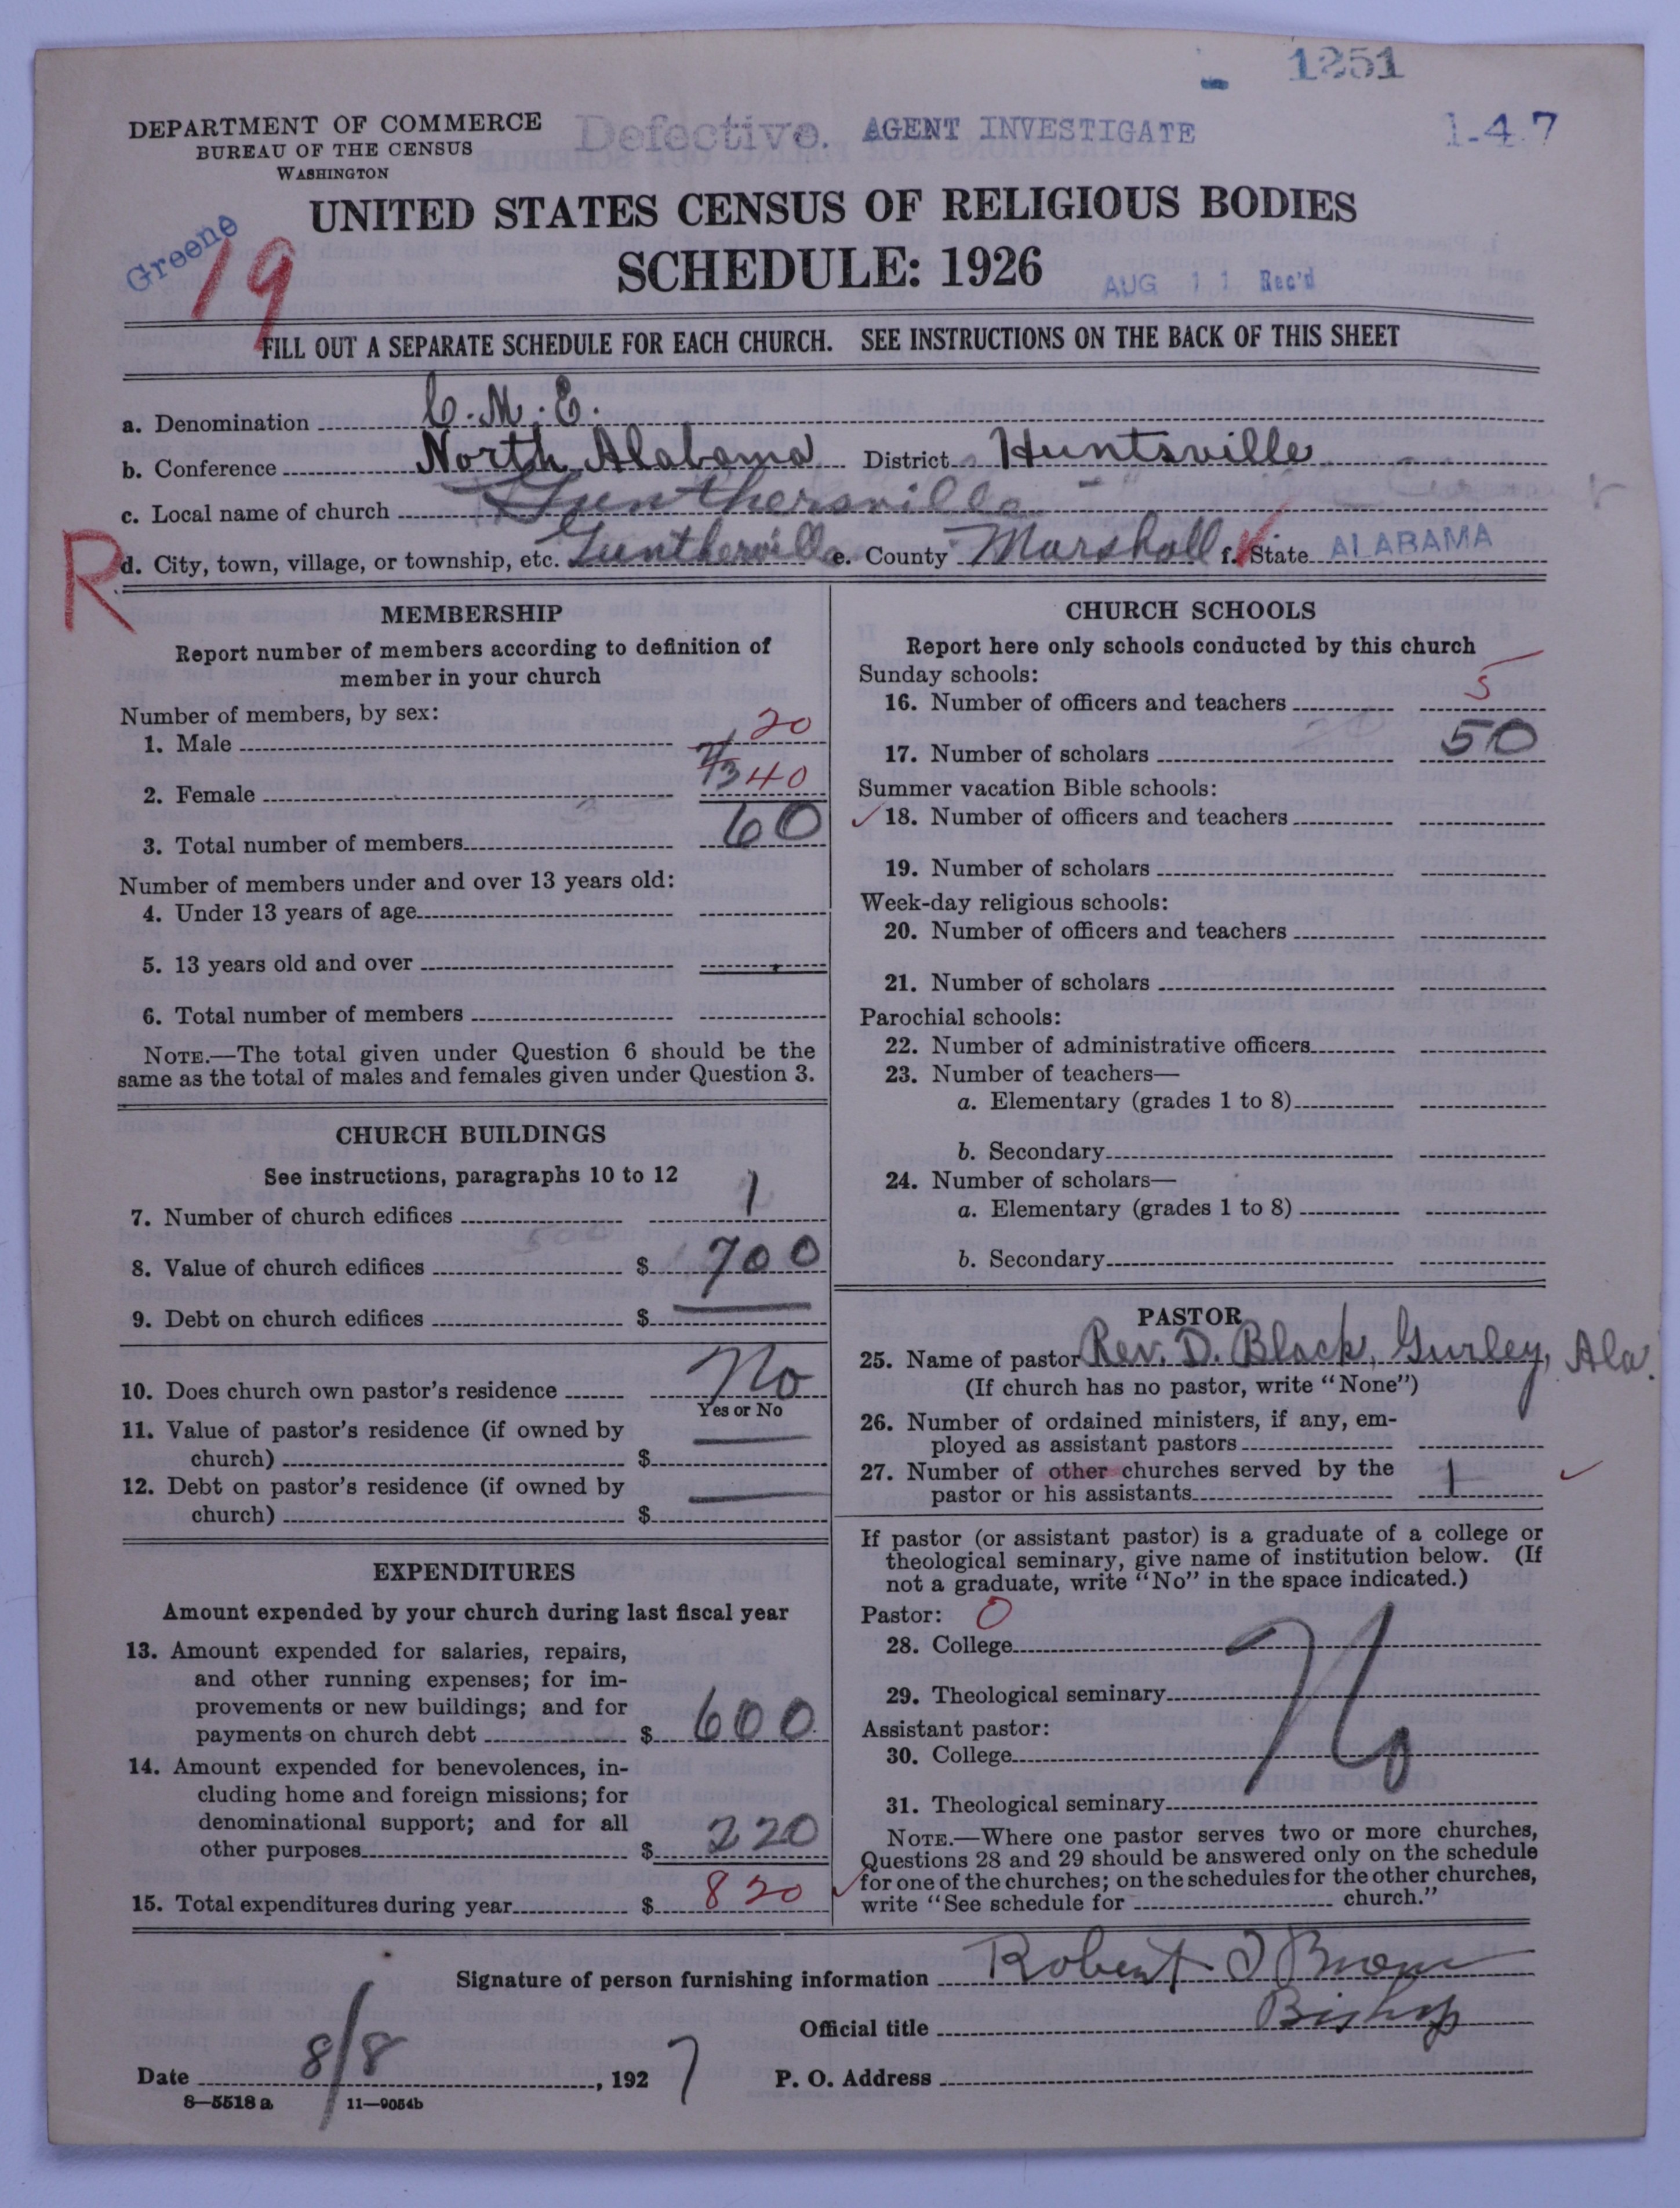 1251
DEPARTMENT OF COMMERCE
BUREAU OF THE CENSUS
WASHINGTON
Defective. AGENT INVESTIGATE
1-47
UNITED STATES CENSUS OF RELIGIOUS BODIES
SCHEDULE: 1926
Greene
19
AUG 11 Rec'd
FILL OUT A SEPARATE SCHEDULE FOR EACH CHURCH. SEE INSTRUCTIONS ON THE BACK OF THIS SHEET
a. Denomination C.M.E.
b. Conference North Alabama District Huntsville
c. Local name of church Gunthersville
R
d. City, town, village, or township, etc. Guntherville e. County Marshall f. State ALABAMA
MEMBERSHIP
Report number of members according to definition of
member in your church
Number of members, by sex:
1. Male 20
2. Female 40
3. Total number of members 60
Number of members under and over 13 years old:
4. Under 13 years of age
5. 13 years old and over
6. Total number of members
NOTE.—The total given under Question 6 should be the
same as the total of males and females given under Question 3.
CHURCH BUILDINGS
See instructions, paragraphs 10 to 12
7. Number of church edifices 1
500
8. Value of church edifices $ 700
9. Debt on church edifices $
10. Does church own pastor's residence No
Yes or No
11. Value of pastor's residence (if owned by
church) $
12. Debt on pastor's residence (if owned by
church) $
EXPENDITURES
Amount expended by your church during last fiscal year
13. Amount expended for salaries, repairs,
and other running expenses; for im-
provements or new buildings; and for
payments on church debt $ 600
14. Amount expended for benevolences, in-
cluding home and foreign missions; for
denominational support; and for all
other purposes $ 220
15. Total expenditures during year $ 820
CHURCH SCHOOLS
Report here only schools conducted by this church
Sunday schools:
16. Number of officers and teachers 5
17. Number of scholars 50
Summer vacation Bible schools:
18. Number of officers and teachers
19. Number of scholars
Week-day religious schools:
20. Number of officers and teachers
21. Number of scholars
Parochial schools:
22. Number of administrative officers
23. Number of teachers—
a. Elementary (grades 1 to 8)
b. Secondary
24. Number of scholars—
a. Elementary (grades 1 to 8)
b. Secondary
PASTOR
25. Name of pastor Rev. D. Black, Gurley, Ala.
(If church has no pastor, write "None")
26. Number of ordained ministers, if any, em-
ployed as assistant pastors
27. Number of other churches served by the
pastor or his assistants 1
If pastor (or assistant pastor) is a graduate of a college or
theological seminary, give name of institution below. (If
not a graduate, write "No" in the space indicated.)
Pastor: 0
28. College
29. Theological seminary No
Assistant pastor:
30. College
31. Theological seminary
NOTE.—Where one pastor serves two or more churches,
Questions 28 and 29 should be answered only on the schedule
for one of the churches; on the schedules for the other churches,
write "See schedule for church."
Signature of person furnishing information Robert
Official title Bishop
Date 8/8, 1927 P. O. Address
8—5518 a 11—9054b